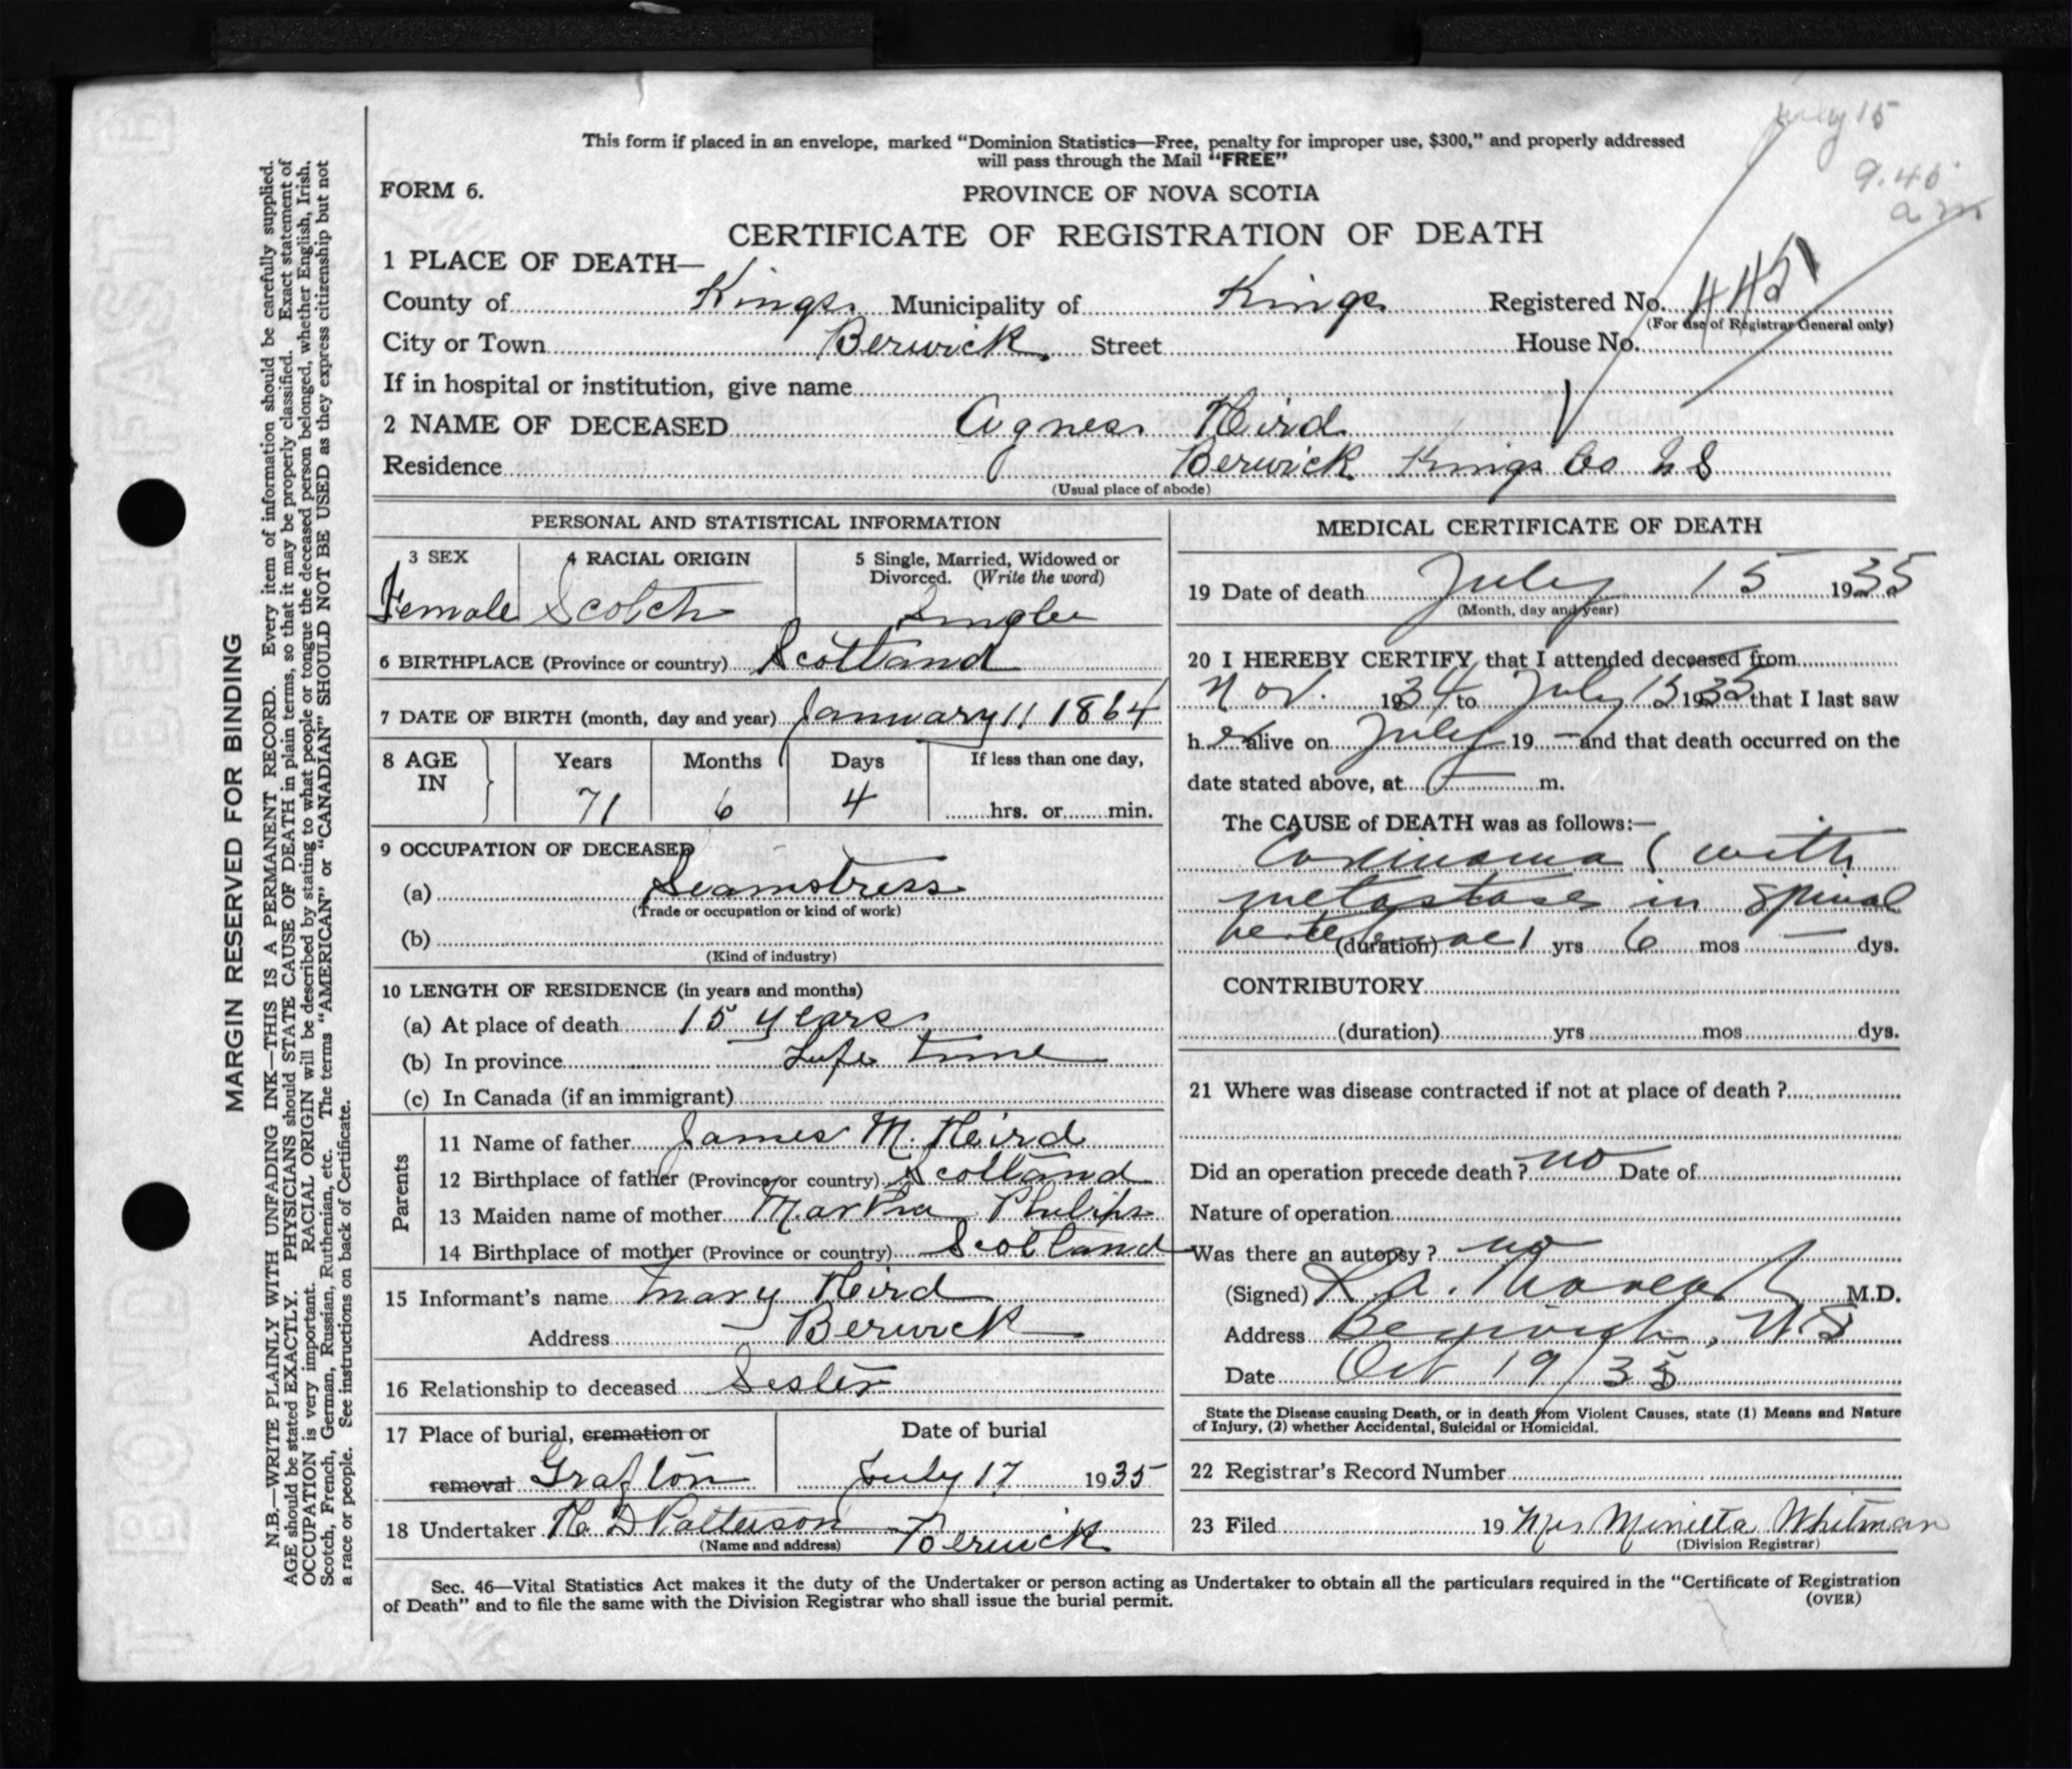 July 15
9.40
a m
This form if placed in an envelope, marked “Dominion Statistics—Free, penalty for improper use, $300,” and properly addressed
will pass through the Mail “FREE”
FORM 6.
PROVINCE OF NOVA SCOTIA
CERTIFICATE OF REGISTRATION OF DEATH
1 PLACE OF DEATH—
County of Kings Municipality of Kings Registered No.
(For use of Registrar General only)
City or Town Berwick Street House No.
If in hospital or institution, give name
2 NAME OF DECEASED Agness Heird
Residence Berwick Kings Co N S
(Usual place of abode)
PERSONAL AND STATISTICAL INFORMATION
3 SEX
Female
4 RACIAL ORIGIN
Scotch
5 Single, Married, Widowed or
Divorced. (Write the word)
Single
6 BIRTHPLACE (Province or country) Scotland
7 DATE OF BIRTH (month, day and year) January 11 1864
8 AGE
IN
Years
71
Months
6
Days
4
If less than one day,
hrs. or min.
9 OCCUPATION OF DECEASED
(a) Seamstress
(Trade or occupation or kind of work)
(b)
(Kind of industry)
10 LENGTH OF RESIDENCE (in years and months)
(a) At place of death 15 years
(b) In province Life time
(c) In Canada (if an immigrant)
Parents
11 Name of father James M. Heird
12 Birthplace of father (Province or country) Scotland
13 Maiden name of mother Martha Philips
14 Birthplace of mother (Province or country) Scotland
15 Informant's name Mary Heird
Address Berwick
16 Relationship to deceased Sister
17 Place of burial, cremation or
removal Grafton
Date of burial
July 17 1935
18 Undertaker H. D Patterson Berwick
(Name and address)
MEDICAL CERTIFICATE OF DEATH
19 Date of death July 15 1935
(Month, day and year)
20 I HEREBY CERTIFY, that I attended deceased from
Nov. 1934 to July 15 1935 that I last saw
her alive on July 19 — and that death occurred on the
date stated above, at — m.
The CAUSE of DEATH was as follows:—
Carcinoma (with
metastases in spinal
vertebrae (duration) 1 yrs 6 mos — dys.
CONTRIBUTORY
(duration) yrs mos dys.
21 Where was disease contracted if not at place of death ?
Did an operation precede death ? no Date of
Nature of operation
Was there an autopsy ? no
(Signed) M.D.
Address Berwick, N.S
Date Oct 19/35
State the Disease causing Death, or in death from Violent Causes, state (1) Means and Nature
of Injury, (2) whether Accidental, Suicidal or Homicidal.
22 Registrar's Record Number
23 Filed 19 Mrs Minetta Whitman
(Division Registrar)
Sec. 46—Vital Statistics Act makes it the duty of the Undertaker or person acting as Undertaker to obtain all the particulars required in the “Certificate of Registration
of Death” and to file the same with the Division Registrar who shall issue the burial permit.
(OVER)
MARGIN RESERVED FOR BINDING
N.B.—WRITE PLAINLY WITH UNFADING INK—THIS IS A PERMANENT RECORD. Every item of information should be carefully supplied.
AGE should be stated EXACTLY. PHYSICIANS should STATE CAUSE OF DEATH in plain terms, so that it may be properly classified. Exact statement of
OCCUPATION is very important. RACIAL ORIGIN will be described by stating to what people or tongue the deceased person belonged, whether English, Irish,
Scotch, French, German, Russian, Ruthenian, etc. The terms “AMERICAN” or “CANADIAN” SHOULD NOT BE USED as they express citizenship but not
a race or people. See instructions on back of Certificate.